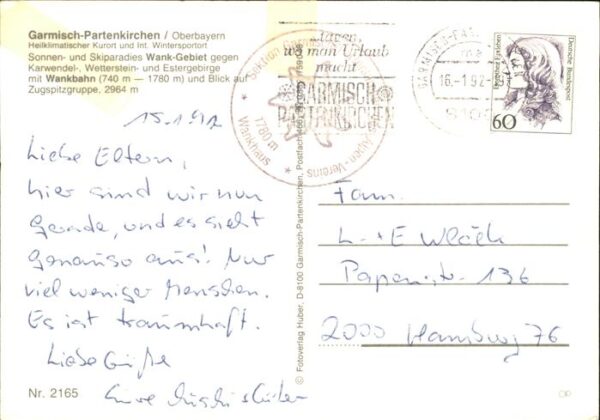 Garmisch-Partenkirchen / Oberbayern
Heilklimatischer Kurort und Int. Wintersportort
Sonnen- und Skiparadies Wank-Gebiet gegen
Karwendel-, Wetterstein- und Estergebirge
mit Wankbahn (740 m — 1780 m) und Blick auf
Zugspitzgruppe, 2964 m
15.1.92
Liebe Eltern,
hier sind wir nun
gerade, und es sieht
genauso aus! Nur
viel weniger Menschen.
Es ist traumhaft.
Liebe Grüße
Eure
Nr. 2165
© Fotoverlag Huber, D-8100 Garmisch-Partenkirchen, Postfach
Sektion
Alpen-Vereins
1780 m
Wankhaus
wo man Urlaub
macht
GARMISCH
PARTENKIRCHEN
16.-1.92
8100
Deutsche Bundespost
60
Fam.
L. + E
Papenstr. 136
2000 Hamburg 76